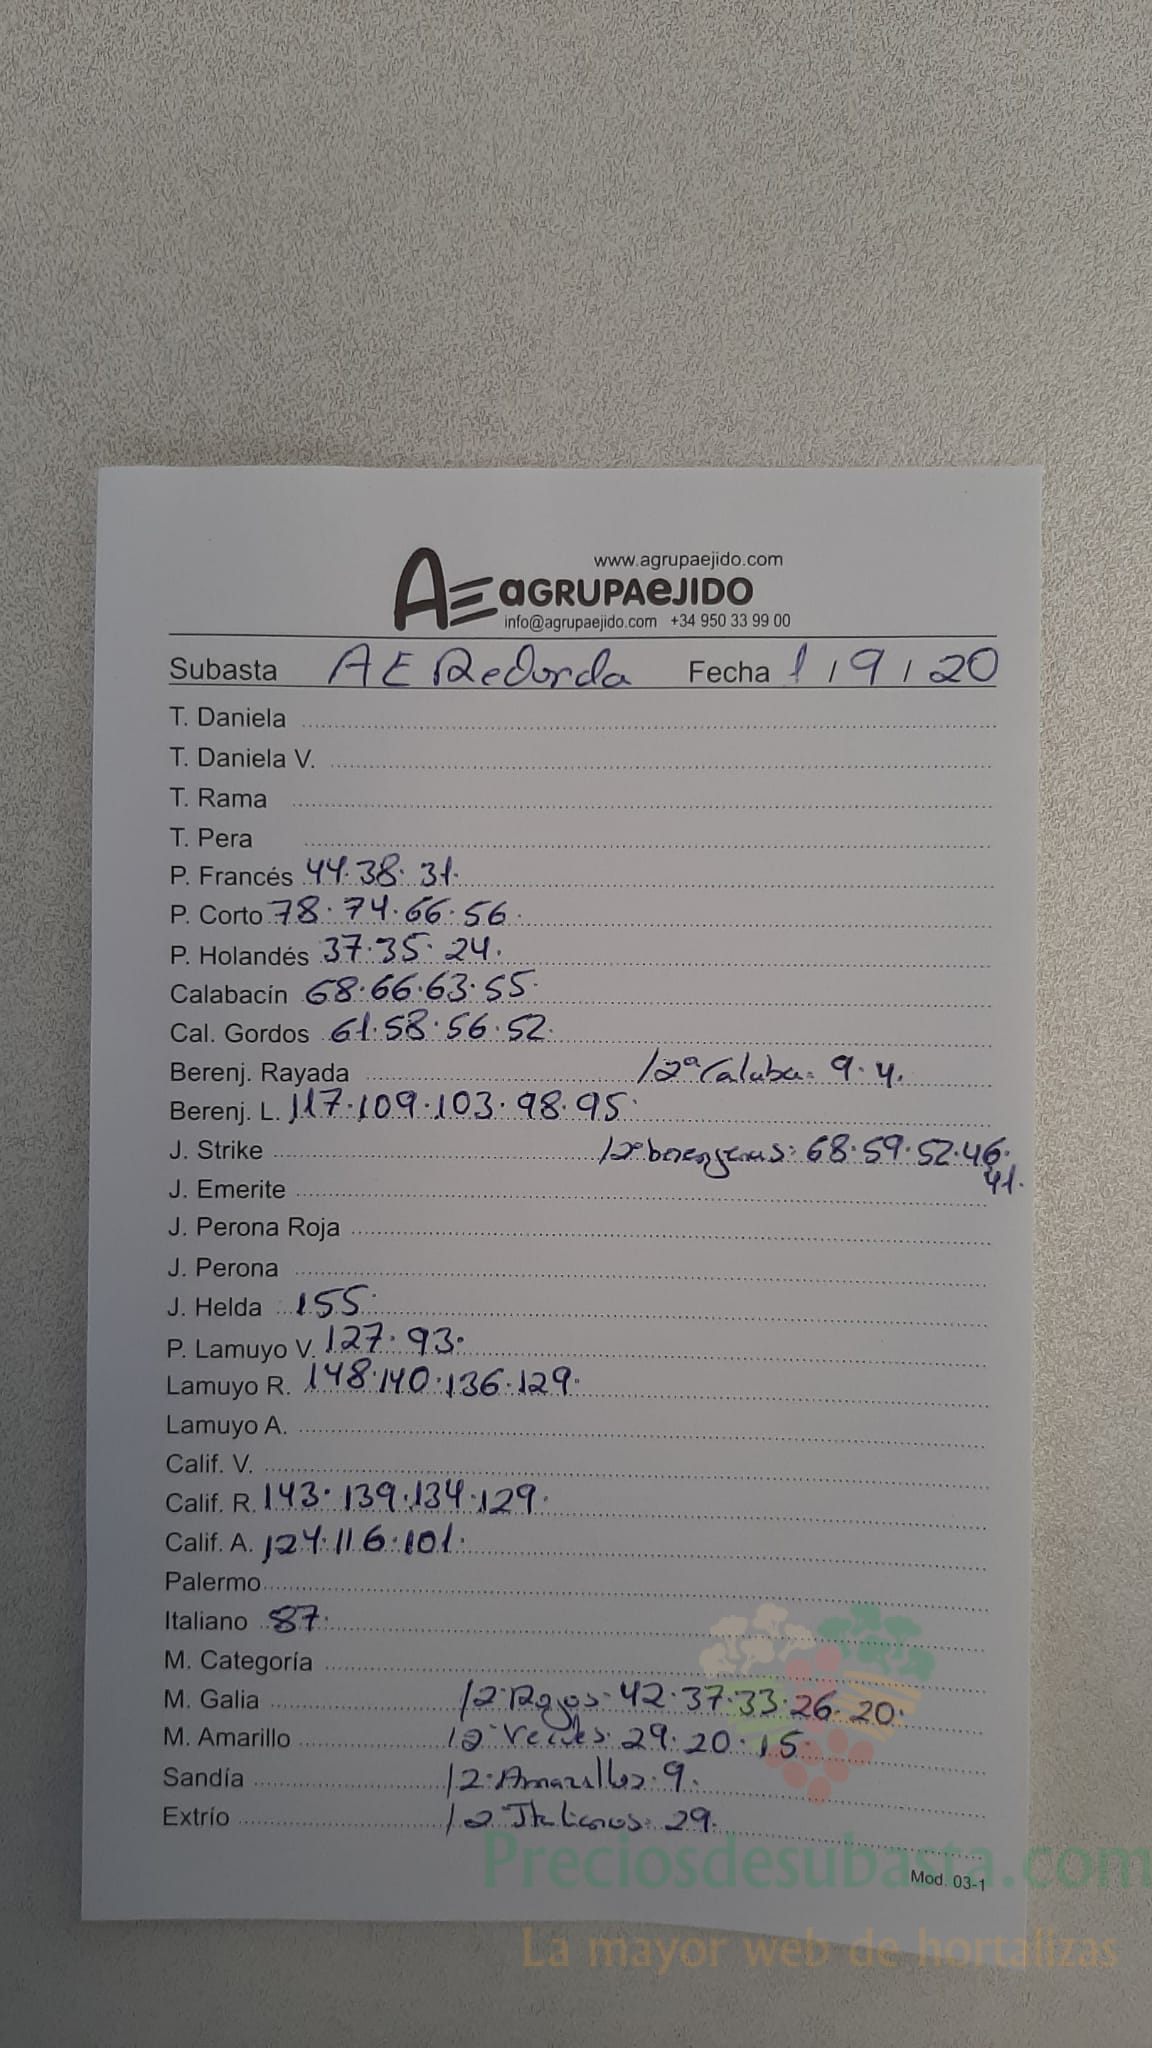 www.agrupaejido.com
AE aGRUPAeJIDO
info@agrupaejido.com +34 950 33 99 00
Subasta AE Redonda Fecha 1 / 9 / 20
T. Daniela
T. Daniela V.
T. Rama
T. Pera
P. Francés 44.38.31.
P. Corto 78.74.66.56.
P. Holandés 37.35.24.
Calabacín 68.66.63.55.
Cal. Gordos 61.58.56.52.
Berenj. Rayada /2ª Calaba: 9.4.
Berenj. L. 117.109.103.98.95.
J. Strike /2ª berenjenas: 68.59.52.46.
41.
J. Emerite
J. Perona Roja
J. Perona
J. Helda 155.
P. Lamuyo V. 127.93.
Lamuyo R. 148.140.136.129.
Lamuyo A.
Calif. V.
Calif. R. 143.139.134.129.
Calif. A. 124.116.101.
Palermo
Italiano 87.
M. Categoría
M. Galia /2ª Rojos. 42.37.33.26.20.
M. Amarillo /2ª Verdes. 29.20.15
Sandía /2ª Amarillos. 9.
Extrío /2ª Italianos: 29.
Mod. 03-1
Preciosdesubasta.com
La mayor web de hortalizas